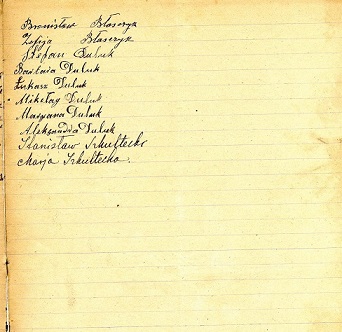 Bronisław Błaszczyk
Zofija Błaszczyk
Stepan Duluk
Bastaia Duluk
Łukasz Duluk
Mikełaj Duluk
Maryana Duluk
Aleksandra Duluk
Stanisław Szkultecko
Marja Szkultecka.